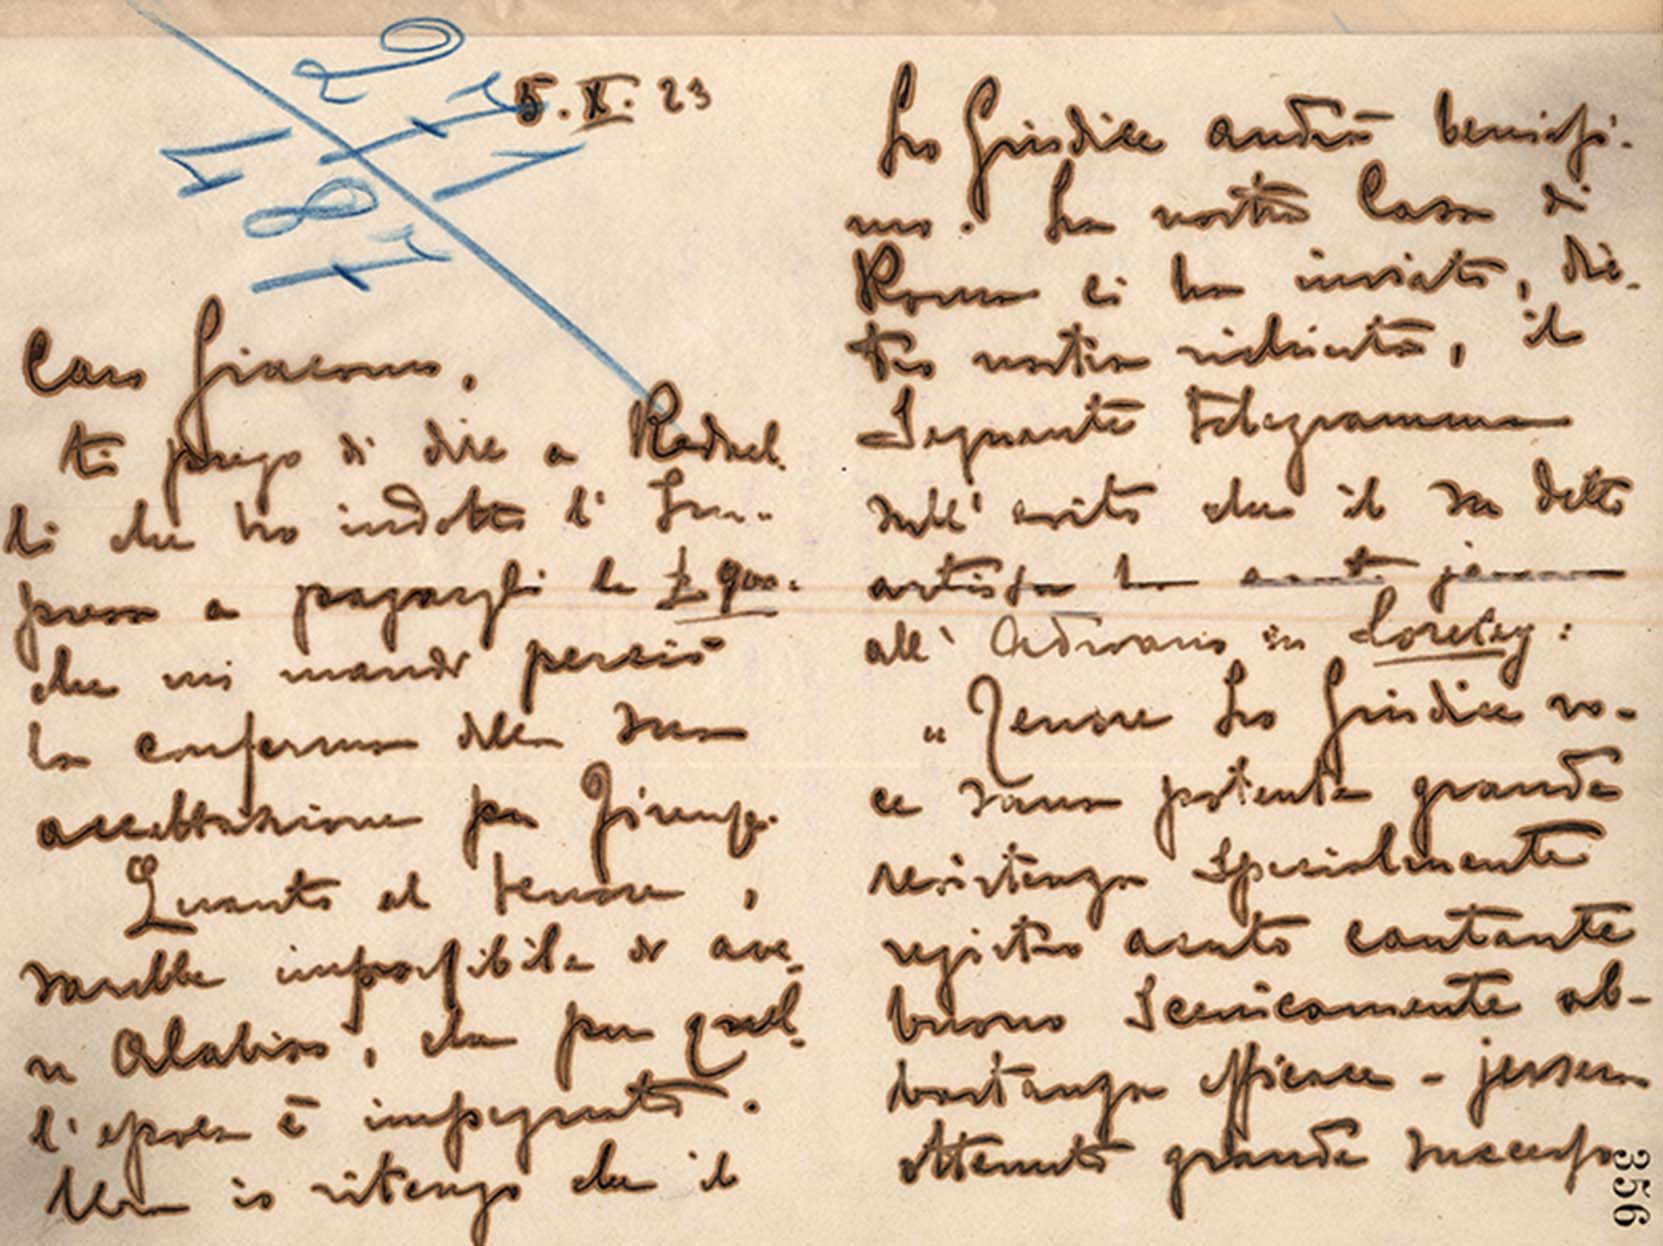 5.X.23
Caro Giacomo,
ti prego di dire a Radicl.
li che ho indotto l'Im-
presa a pagargli le £ 900.
che mi mandi perciò
la conferma della sua
accettazione per Firenze.
Quanto al tenore,
sarebbe impossibile di ave-
re Alabiso, che per quel-
l'epoca è impegnato.
Ma io ritengo che il
Lo Giudice andrà benissi-
mo. La nostra Casa di
Roma ci ha inviato, die-
tro nostra richiesta, il
seguente telegramma
sull'esito che il su detto
artista
all'Adriano in Loreley:
"Tenore Lo Giudice vo-
ce sana potente grande
resistenza specialmente
registro acuto cantante
buono scenicamente ab-
bastanza efficace -
ottenuto grande successo
356